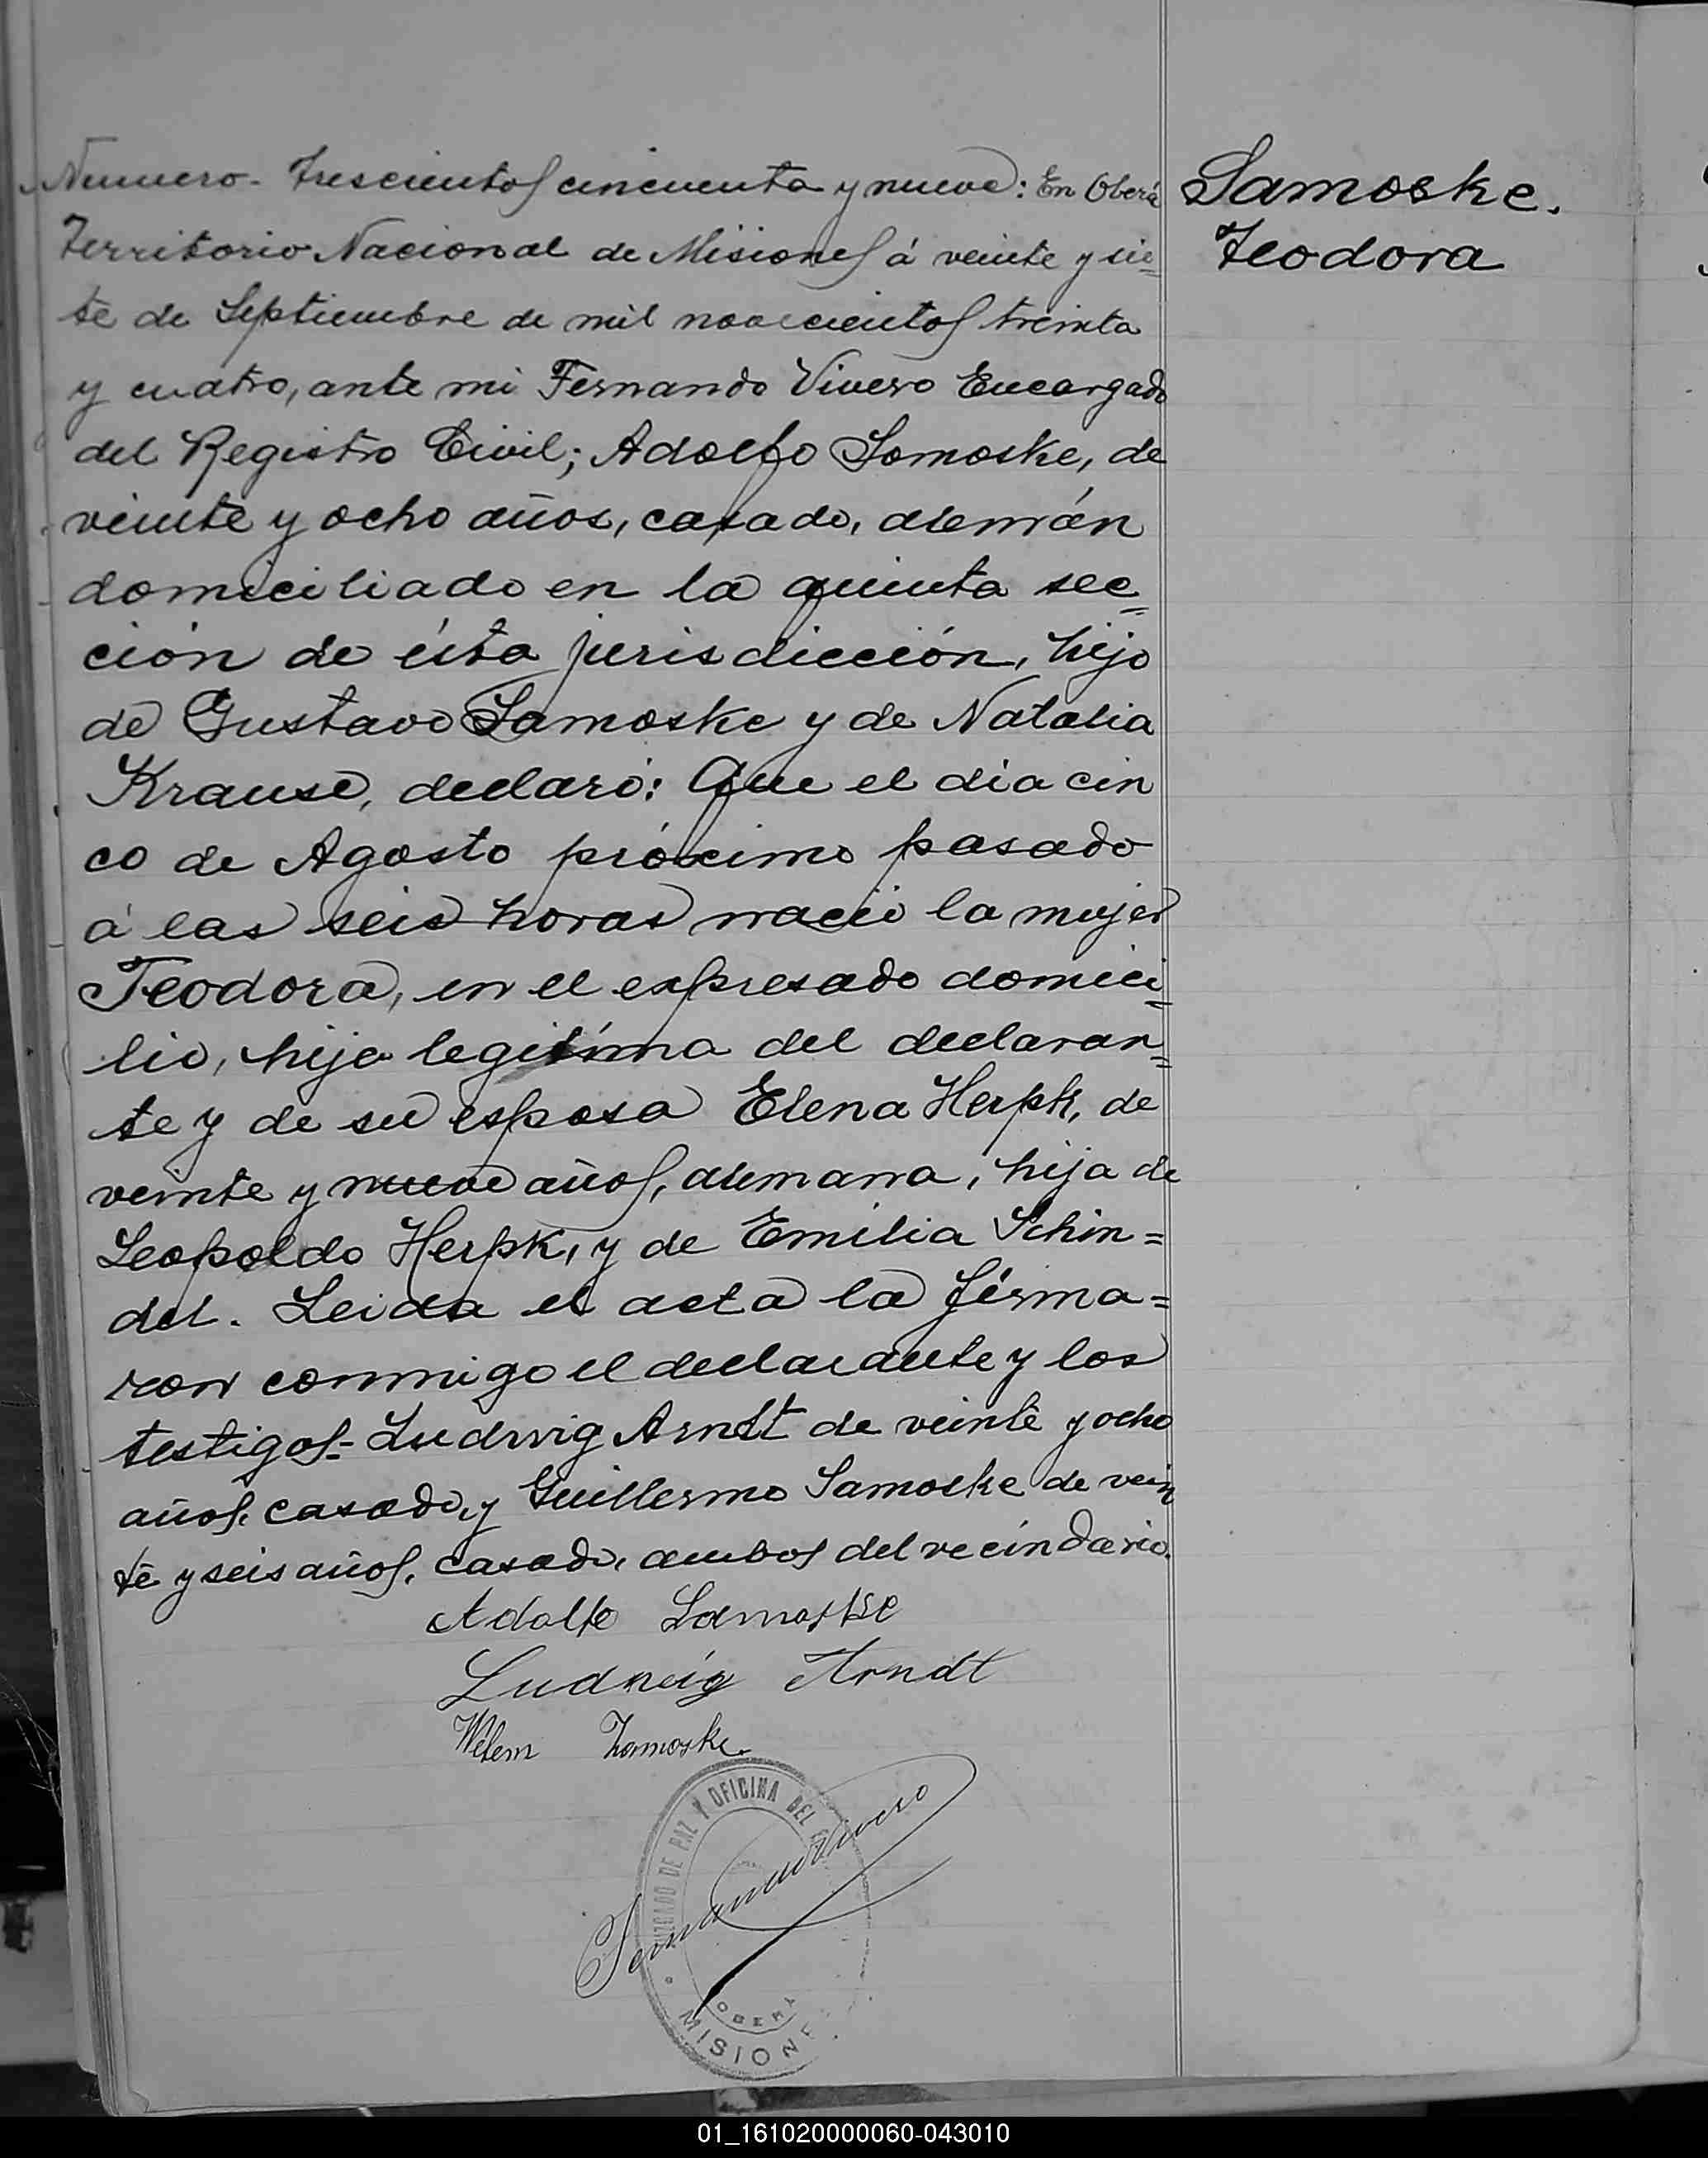 Numero. Trescientos cincuenta y nueve: En Oberá
Territorio Nacional de Misiones á veinte y sie=
te de Septiembre de mil novecientos treinta
y cuatro, ante mi Fernando Vivero Encargado
del Registro Civil; Adolfo Samoske, de
veinte y ocho años, casado, alemán
domiciliado en la quinta sec=
ción de ésta jurisdicción, hijo
de Gustavo Samoske y de Natalia
Krause, declaró: Que el dia cin
co de Agosto próximo pasado
á las seis horas nació la mujer
Teodora, en el expresado domici=
lio, hija legitíma del declaran=
te y de su esposa Elena Herpk, de
veinte y nueve años, alemana, hija de
Leopoldo Herpk, y de Emilia Schin=
del. Leida el acta la firma=
ron conmigo el declarante y los
testigos- Ludwig Arndt de veinte y ocho
años, casado, y Guillermo Samoske de vein
te y seis años, casado, ambos del vecindario.
Adolfo Samoske
Ludweig Arndt
Wilem Zamoske.
Fernando Vivero
JUZGADO DE PAZ Y OFICINA DEL
OBERÁ
MISIONES
Samoske.
Teodora
01_161020000060-043010